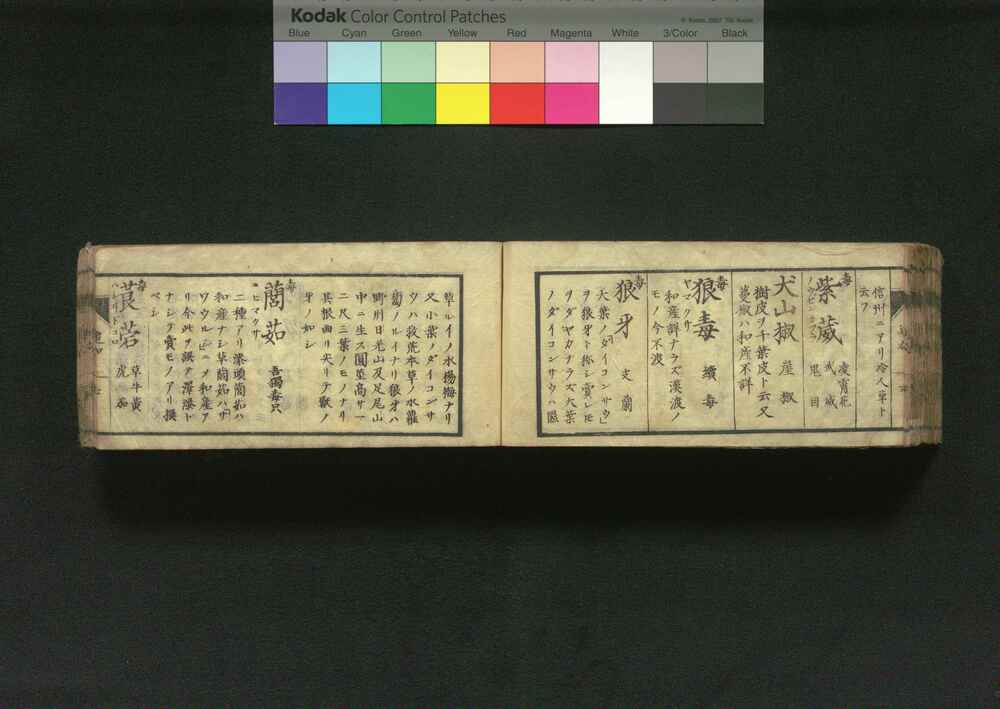 Kodak Color Control Patches
© Kodak, 2007 TM: Kodak
Blue Cyan Green Yellow Red Magenta White 3/Color Black
信州ニアリ冷人草ト
云フ
毒
紫葳 凌霄花
武威
鬼目
犬山椒 崖椒
樹皮ヲ千葉皮ト云又
蔓椒ハ和産不詳
毒
狼毒 續毒
ヤマクサ
和産詳ナラズ漢渡ノ
モノ今不渡
毒
狼牙 支蘭
大葉ノダイコンサウヒ
ヲ狼牙ト称シ賣レモ
ヲダヤカナラズ大葉
ノダイコンサウハ區
草ルイノ水楊梅ナリ
又小葉ノダイコンサ
ウハ救荒本草ノ水蘿
蔔ノルイナリ狼牙ハ
野州日光山及足尾山
中ニ生ス圓莖高サ一
二尺三葉ノモノナリ
其根曲リ尖リテ獣ノ
牙ノ如シ
毒
䕡茹 吾獨毒只
ヒマクサ
二種アリ漆頭䕡茹ハ
和産ナシ草䕡茹ハサ
ワウルシニメ和産ア
リ今此ヲ誤テ澤漆ト
ナシテ賣モノアリ撰
ベシ
毒
莨菪 草牛黄
虎茄
ハシリトコロ